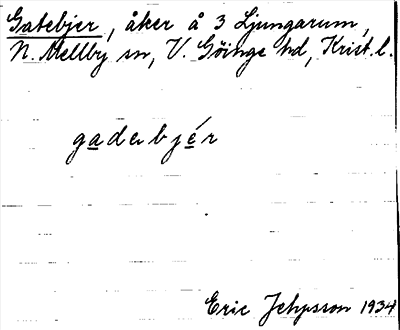 Gatebjer, åker å 3 Ljungarum,
N. Mellby sn, V. Göinge hd, Krist. l.
gadebjér
Eric Jepsson 1934